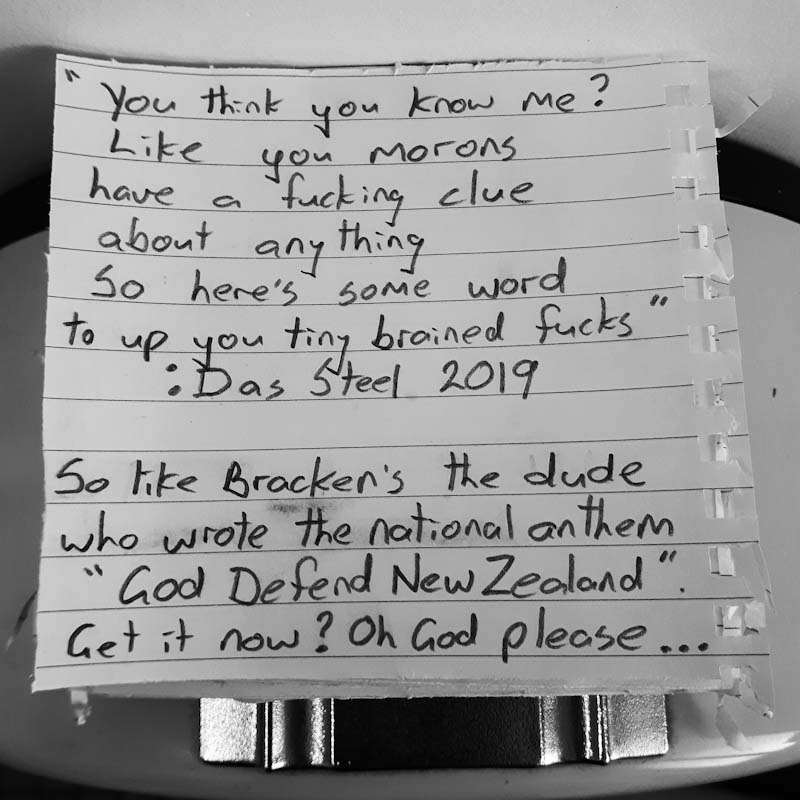 "You think you know me?
Like you morons
have a fucking clue
about anything
So here's some word
to up you tiny brained fucks"
:Das Steel 2019
So like Bracken's the dude
who wrote the national anthem
"God Defend New Zealand".
Get it now? Oh God please...